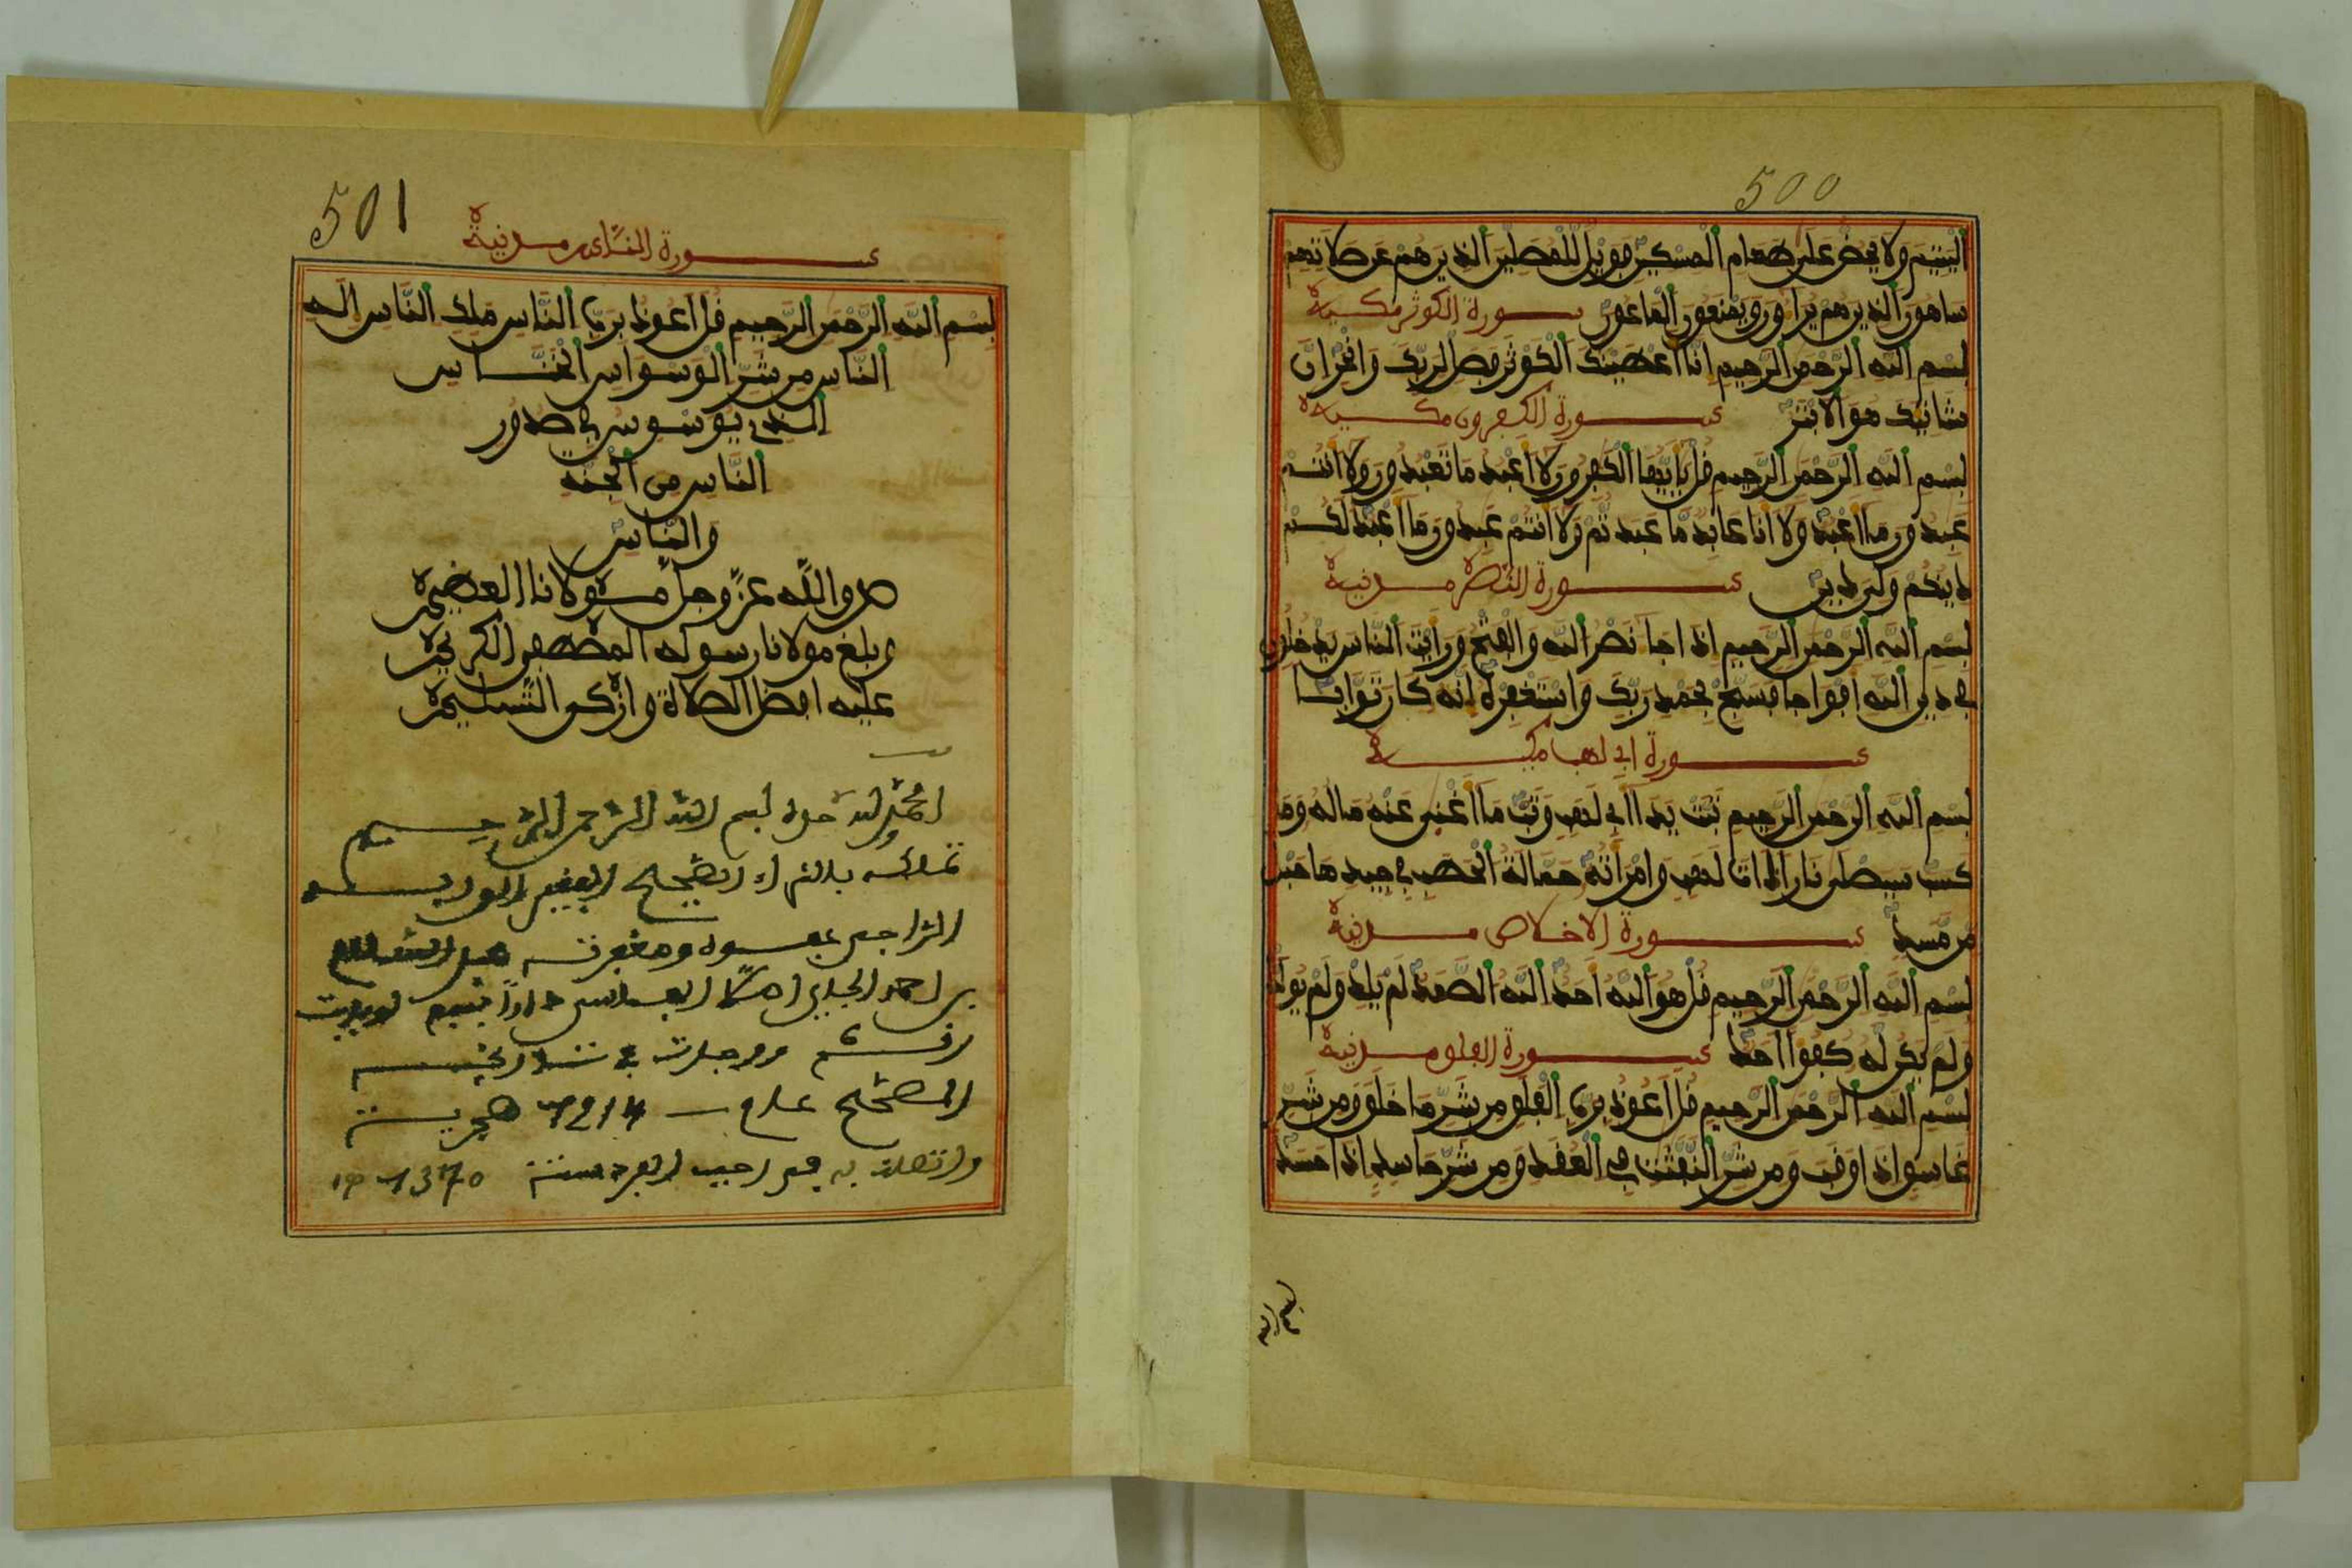 500
اليتيم ولا يحض على طعام المسكين فويل للمصلين الذين هم عن صلاتهم
ساهون الذين هم يراءون ويمنعون الماعون سورة الكوثر مكية
بسم الله الرحمن الرحيم انا أعطينك الكوثر فصل لربك وانحر ان
شانئك هو الابتر سورة الكفرون مكية
بسم الله الرحمن الرحيم قل يأيها الكفرون لا أعبد ما تعبدون ولا أنتم
عبدون ما أعبد ولا انا عابد ما عبدتم ولا أنتم عبدون ما أعبد لكم
دينكم ولي دين سورة النصر مدنية
بسم الله الرحمن الرحيم اذا جا نصر الله والفتح ورأيت الناس يدخلون
في دين الله افواجا فسبح بحمد ربك واستغفره إنه كان توابا
سورة ابي لهب مكية
بسم الله الرحمن الرحيم تبت يدا أبي لهب وتب ما أغنى عنه ماله وما
كسب سيصلى نارا ذات لهب وامرأته حمالة الحطب في جيدها حبل
من مسد سورة الاخلاص مدنية
بسم الله الرحمن الرحيم قل هو الله أحد الله الصمد لم يلد ولم يولد
ولم يكن له كفؤا أحد سورة الفلق مدنية
بسم الله الرحمن الرحيم قل أعوذ برب الفلق من شر ما خلق ومن شر
غاسق اذا وقب ومن شر النفثت في العقد ومن شر حاسد اذا حسد
بسم الله
501
سورة الناس مدنية
بسم الله الرحمن الرحيم قل أعوذ برب الناس ملك الناس إله
الناس من شر الوسواس الخناس
الذي يوسوس في صدور
الناس من الجنة
والناس
صدق الله عز وجل مولانا العظيم
وبلغ مولانا رسوله المصطفى الكريم
عليه افضل الصلاة وازكى التسليم
الحمد لله حوله بسم الله الرحمن الرحيم
تملكه بالشراء الصحيح الفقير الى ربه
الراجي عفوه ومغفرته عبد السلام
بن احمد الجبلي اصلا الفاسي دارا
في تاريخه
الصحيح عام 1214 هجرية
وانتهلت به في رجب الفرد سنة 1370 هـ